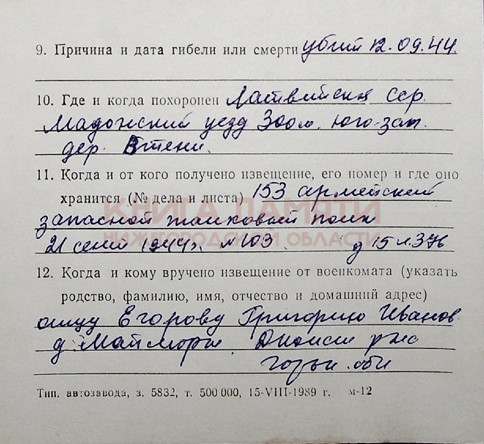 9. Причина и дата гибели или смерти убит 12.09.44.
10. Где и когда похоронен Латвийская сср.
Мадонский уезд 300м. юго-зап.
дер.
11. Когда и от кого получено извещение, его номер и где оно
хранится (№ дела и листа) 153 армейский
запасной танковый полк
21 сент 1944г. №103. д 15 л. 376
КНИГА ПАМЯТИ
НИЖЕГОРОДСКОЙ ОБЛАСТИ
12. Когда и кому вручено извещение от военкомата (указать
родство, фамилию, имя, отчество и домашний адрес)
отцу Егорову Григорию Иванов
д. Майморы
Тип. автозавода, з. 5832, т. 500 000, 15-VIII-1989 г. м-12